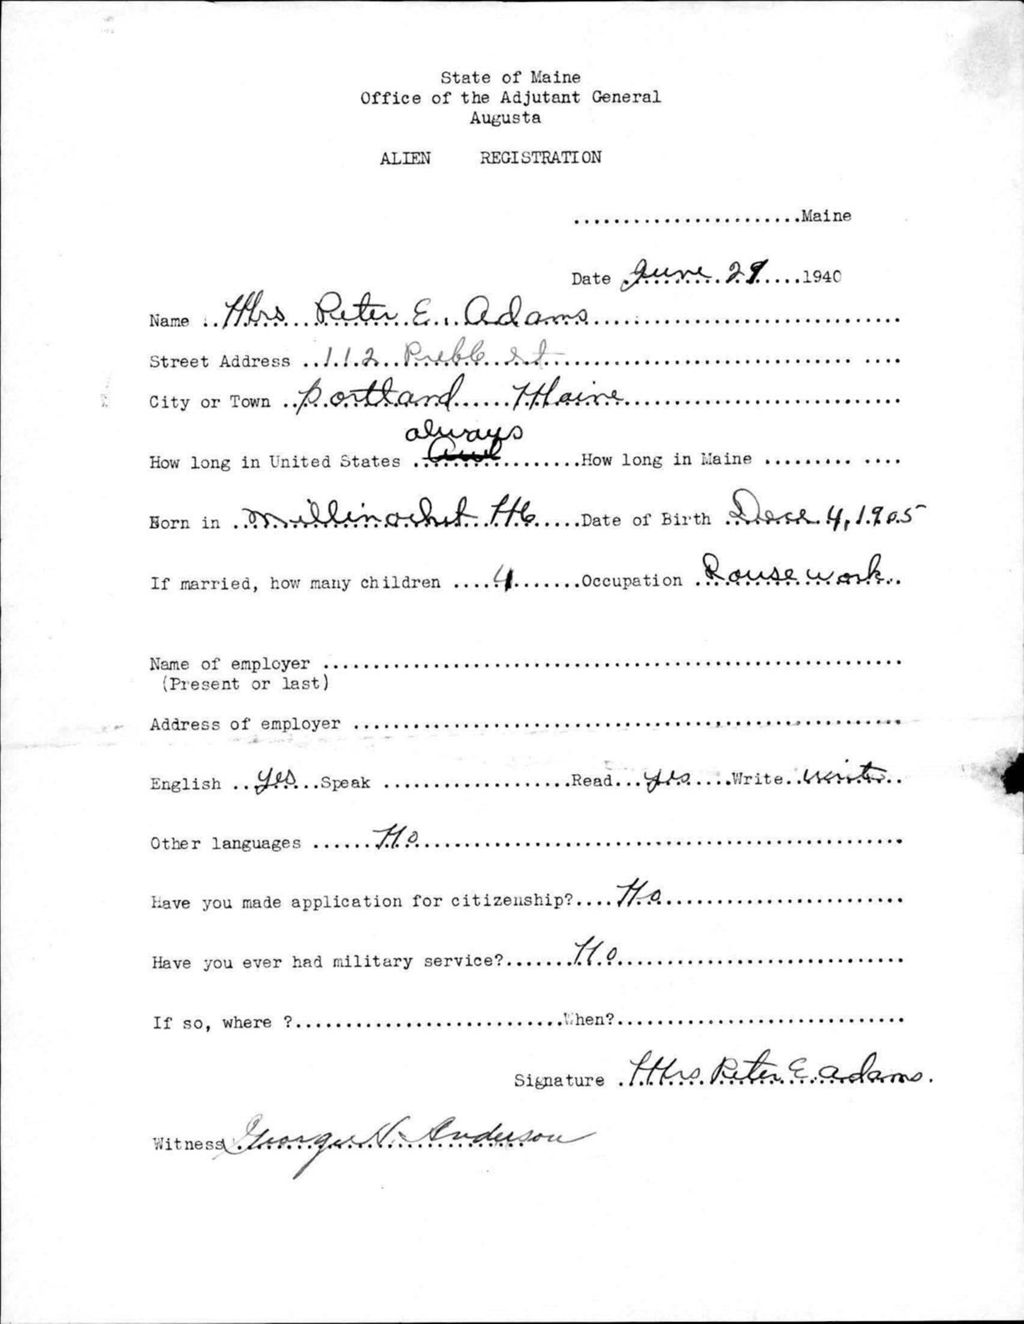 State of Maine
Office of the Adjutant General
Augusta
ALIEN REGISTRATION
.......................Maine
Date June 29 1940
Name Mrs Peter E. Adams
Street Address 112 Preble st
City or Town Portland Maine
always
How long in United States ................How long in Maine ......... ....
Born in Millinocket Me Date of Birth Dec. 4, 1905
If married, how many children 4 Occupation House work
Name of employer ..........................................................
(Present or last)
Address of employer .......................................................
English Yes Speak ...................Read yes Write write
Other languages No
Have you made application for citizenship? No
Have you ever had military service? No
If so, where ?...........................When?.............................
Signature Mrs. Peter E. Adams.
Witness George N. Anderson